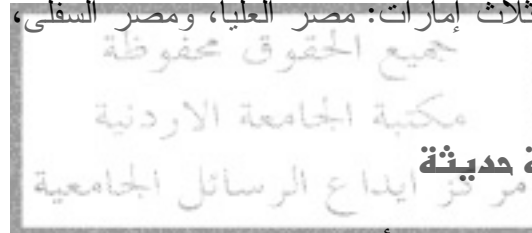 ثلاث إمارات: مصر العليا، ومصر السفلى،
جميع الحقوق محفوظة
مكتبة الجامعة الاردنية
ة حديثة
مركز ايداع الرسائل الجامعية